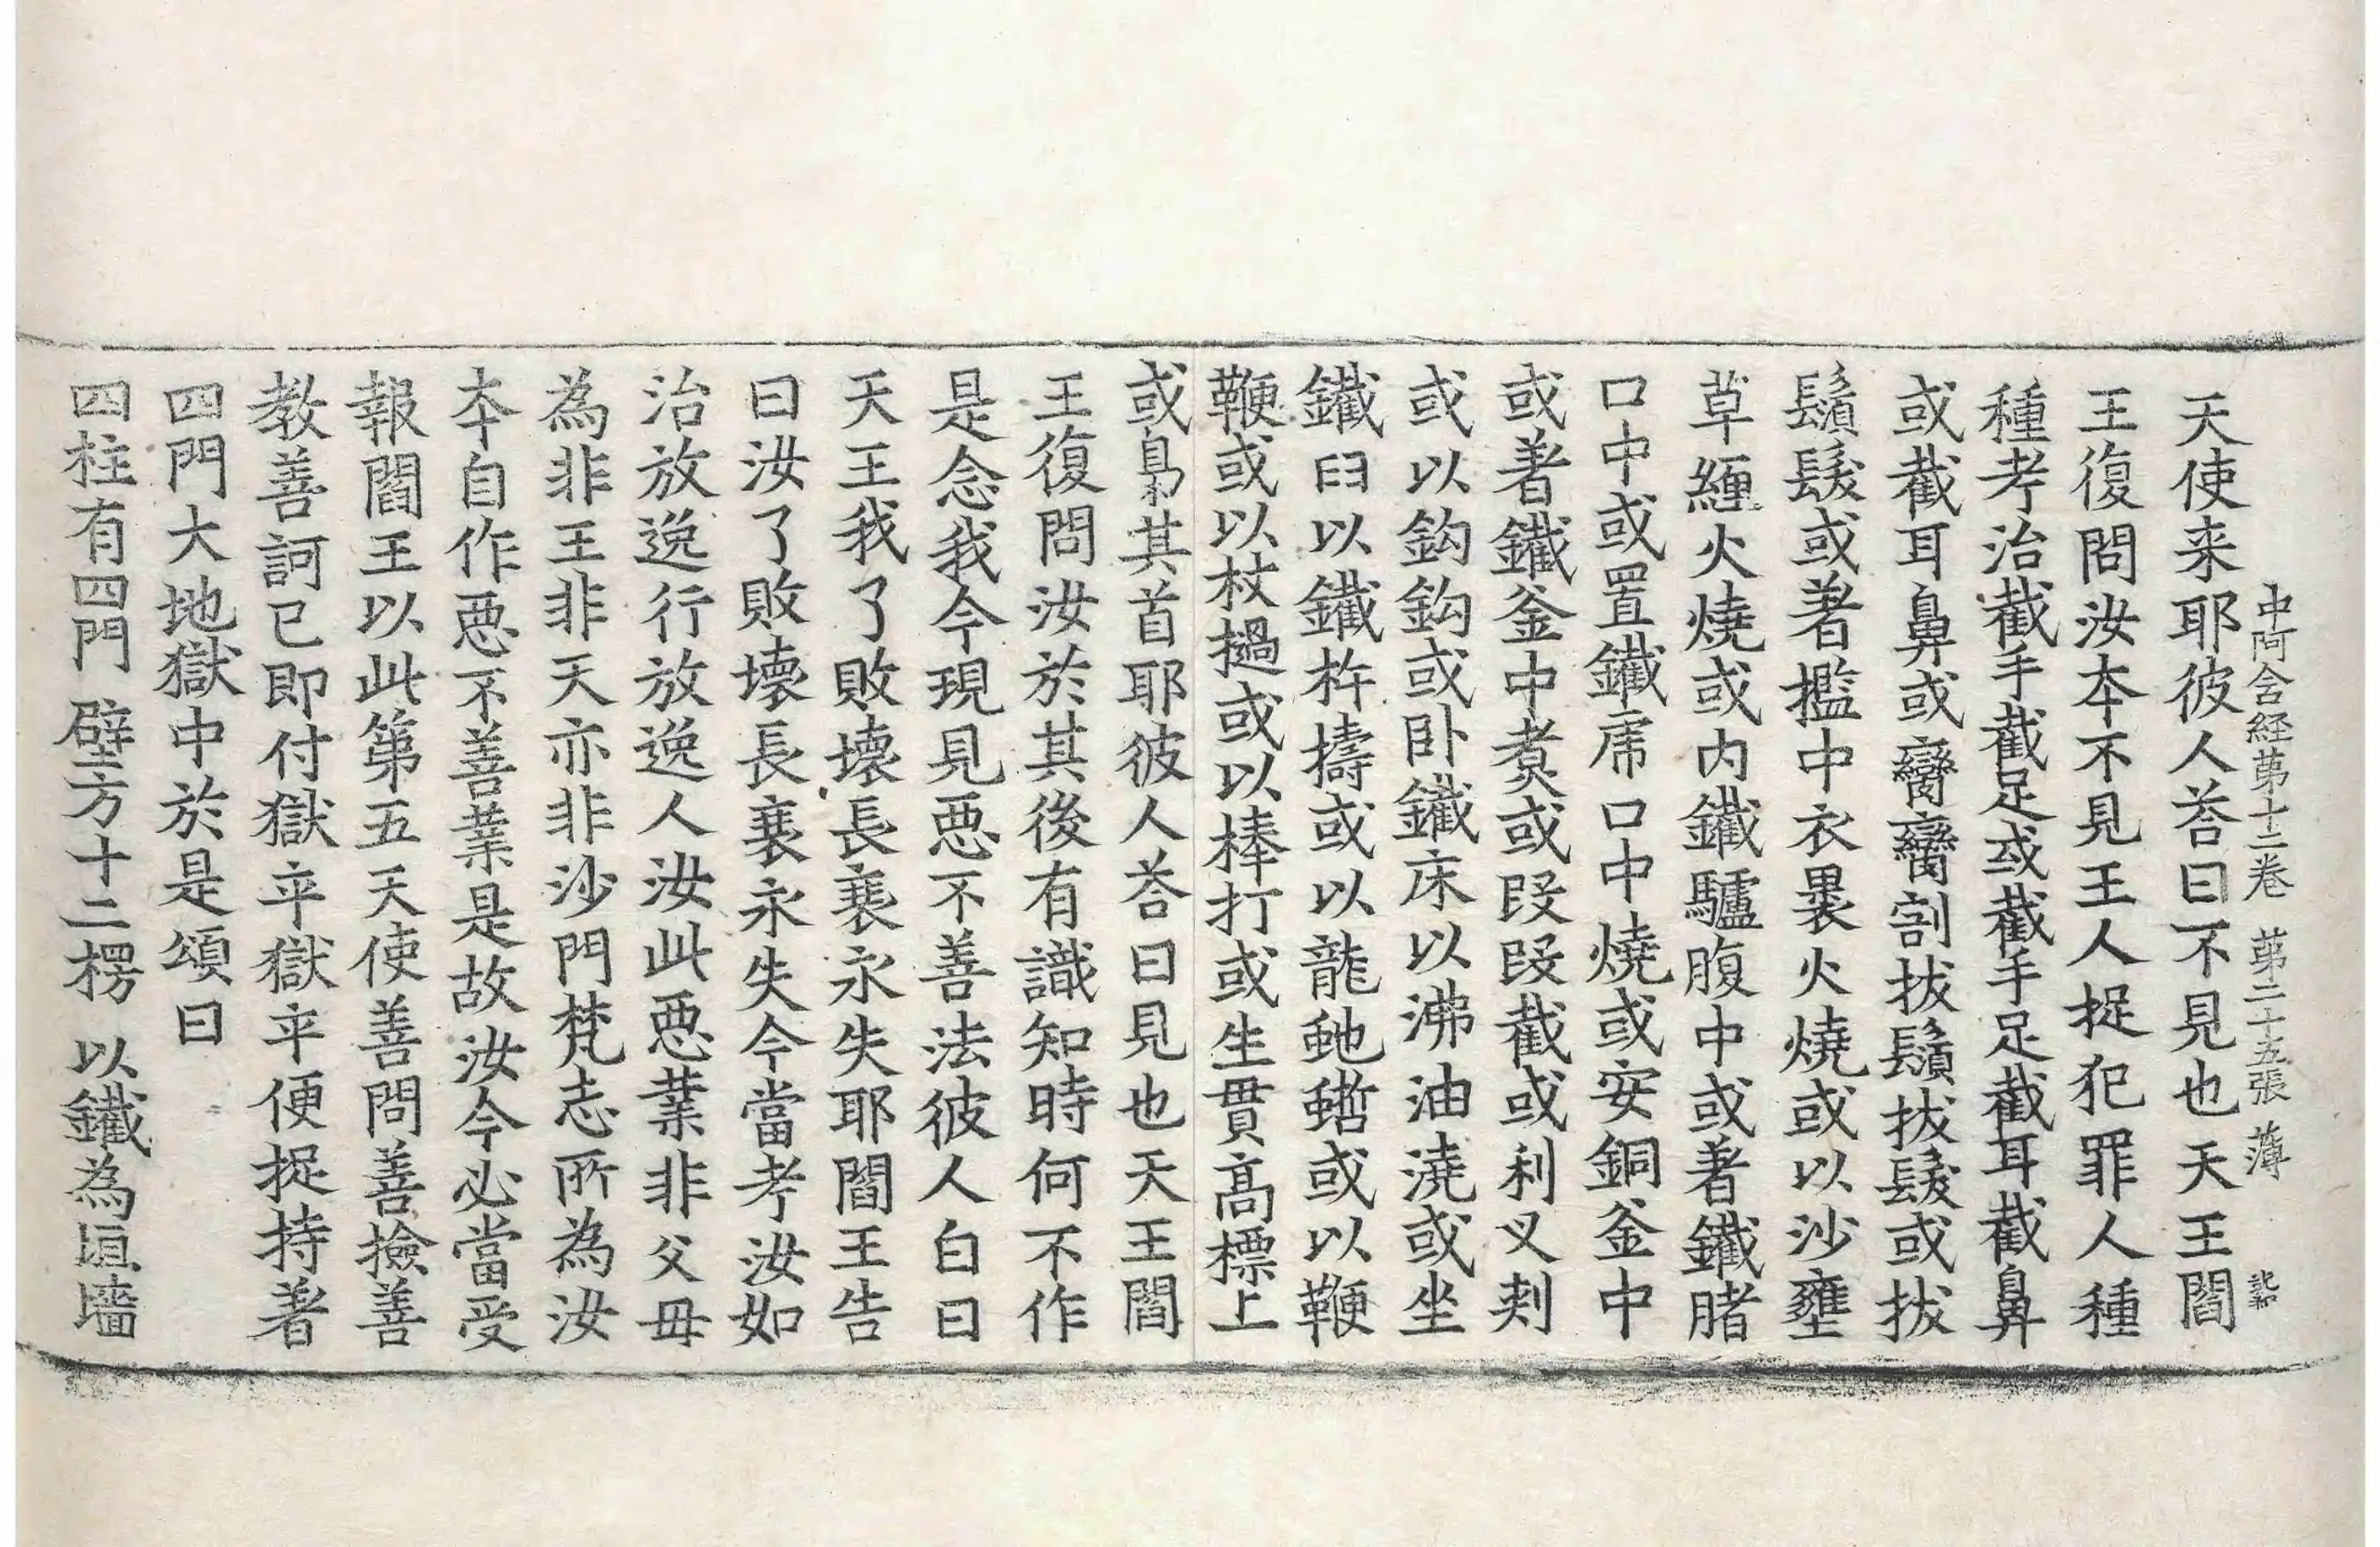 中阿含経第十二卷 第二十五張 薄
天使来耶彼人荅曰不見也天王閻
王復問汝夲不見王人捉犯罪人種
種考治截手截足或截手足截耳截鼻
或截耳鼻或臠臠割拔鬚拔髮或拔
鬚髮或著檻中衣裹火燒或以沙壅
草纒火燒或内鐵驢腹中或著鐵腊
口中或置鐵虎口中燒或安銅釜中
或著鐵釜中煮或段段截或利叉刺
或以鈎鈎或卧鐵床以沸油澆或坐
鐵臼以鐵杵擣或以龍虵蜇或以鞭
鞭或以杖撾或以棒打或生貫髙標上
或梟其首耶彼人荅曰見也天王閻
王復問汝於其後有識知時何不作
是念我今現見惡不善法彼人白曰
天王我了敗壞長衰永失耶閻王告
曰汝了敗壞長衰永失今當考汝如
治放逸行放逸人汝此惡業非父母
為非王非天亦非沙門梵志所為汝
夲自作惡不善業是故汝今必當受
報閻王以此第五天使善問善撿善
教善訶已即付獄卒獄卒便捉持著
四門大地獄中於是頌曰
四柱有四門 壁方十二楞 以鐵為垣墻